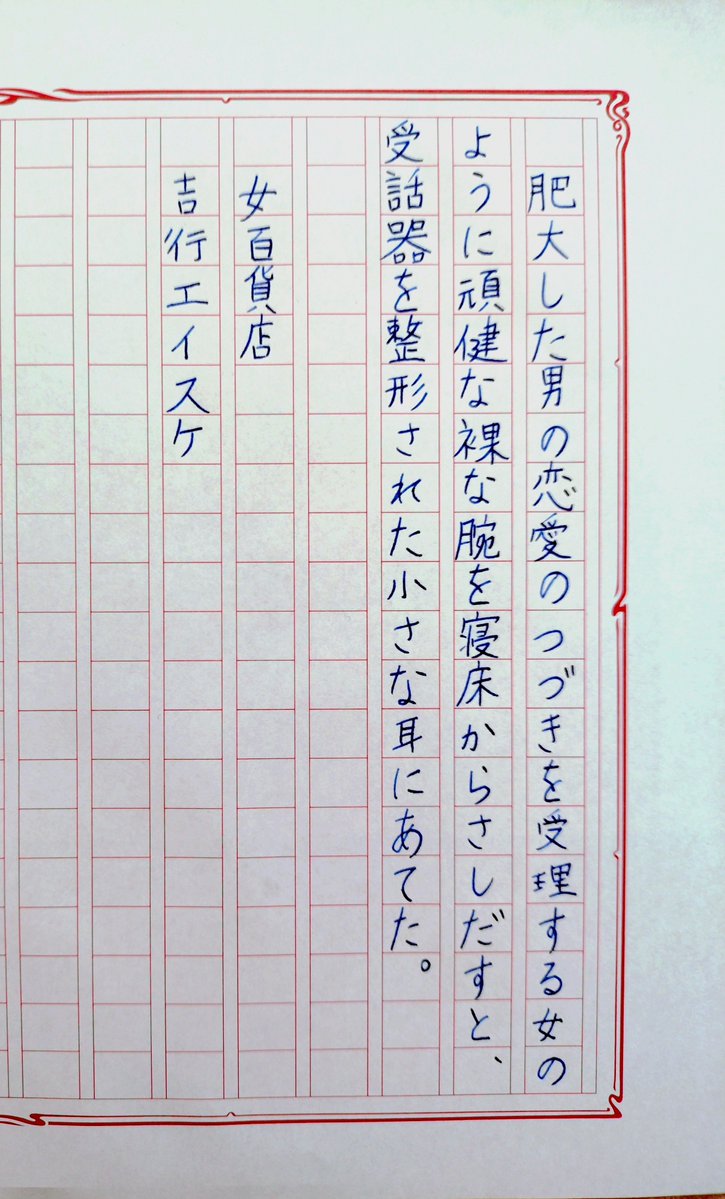 肥大した男の恋愛のつづきを受理する女の
ように頑健な裸な腕を寝床からさしだすと、
受話器を整形された小さな耳にあてた。
女百貨店
吉行エイスケ